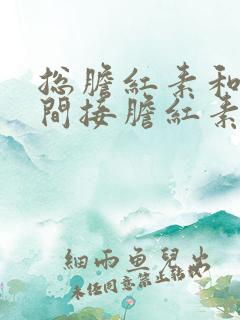 总膽紅素和
間接膽紅素
細雨魚兒出
未經同意禁止轉載